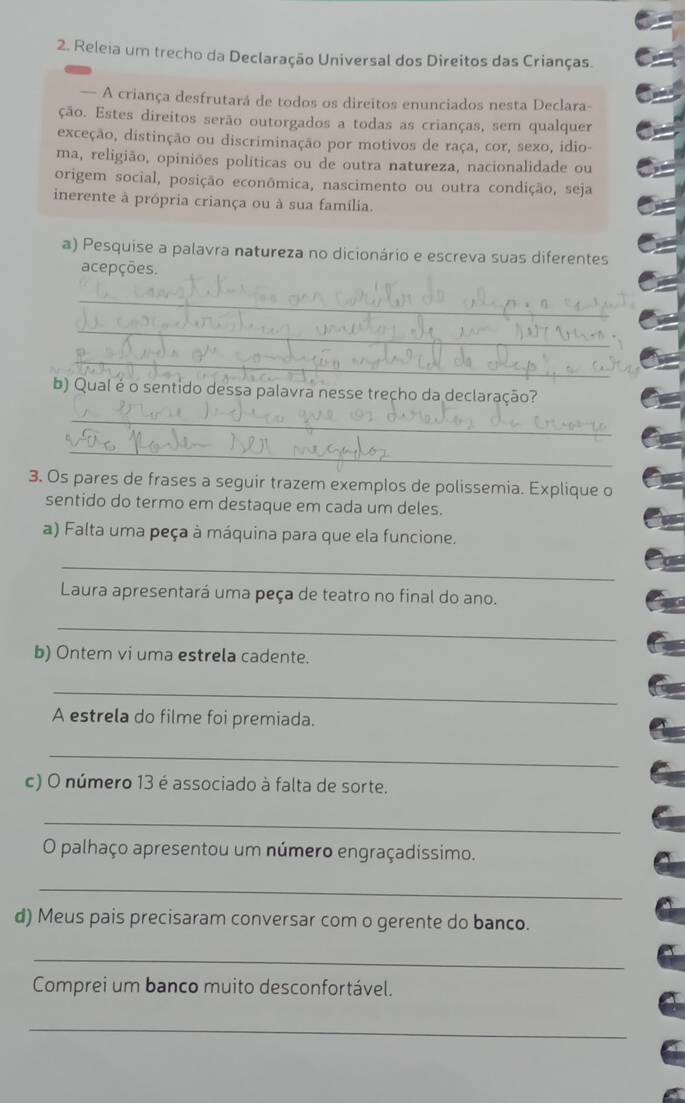 2. Releia um trecho da Declaração Universal dos Direitos das Crianças.
— A criança desfrutará de todos os direitos enunciados nesta Declara-
ção. Estes direitos serão outorgados a todas as crianças, sem qualquer
exceção, distinção ou discriminação por motivos de raça, cor, sexo, idio-
ma, religião, opiniões políticas ou de outra natureza, nacionalidade ou
origem social, posição econômica, nascimento ou outra condição, seja
inerente à própria criança ou à sua família.
a) Pesquise a palavra natureza no dicionário e escreva suas diferentes
acepções.
de um ser
o estado ou condição natural de
natural dos
b) Qual é o sentido dessa palavra nesse trecho da declaração?
que os direitos da criança
não podem ser negados
3. Os pares de frases a seguir trazem exemplos de polissemia. Explique o
sentido do termo em destaque em cada um deles.
a) Falta uma peça à máquina para que ela funcione.
Laura apresentará uma peça de teatro no final do ano.
b) Ontem vi uma estrela cadente.
A estrela do filme foi premiada.
c) O número 13 é associado à falta de sorte.
O palhaço apresentou um número engraçadíssimo.
d) Meus pais precisaram conversar com o gerente do banco.
Comprei um banco muito desconfortável.